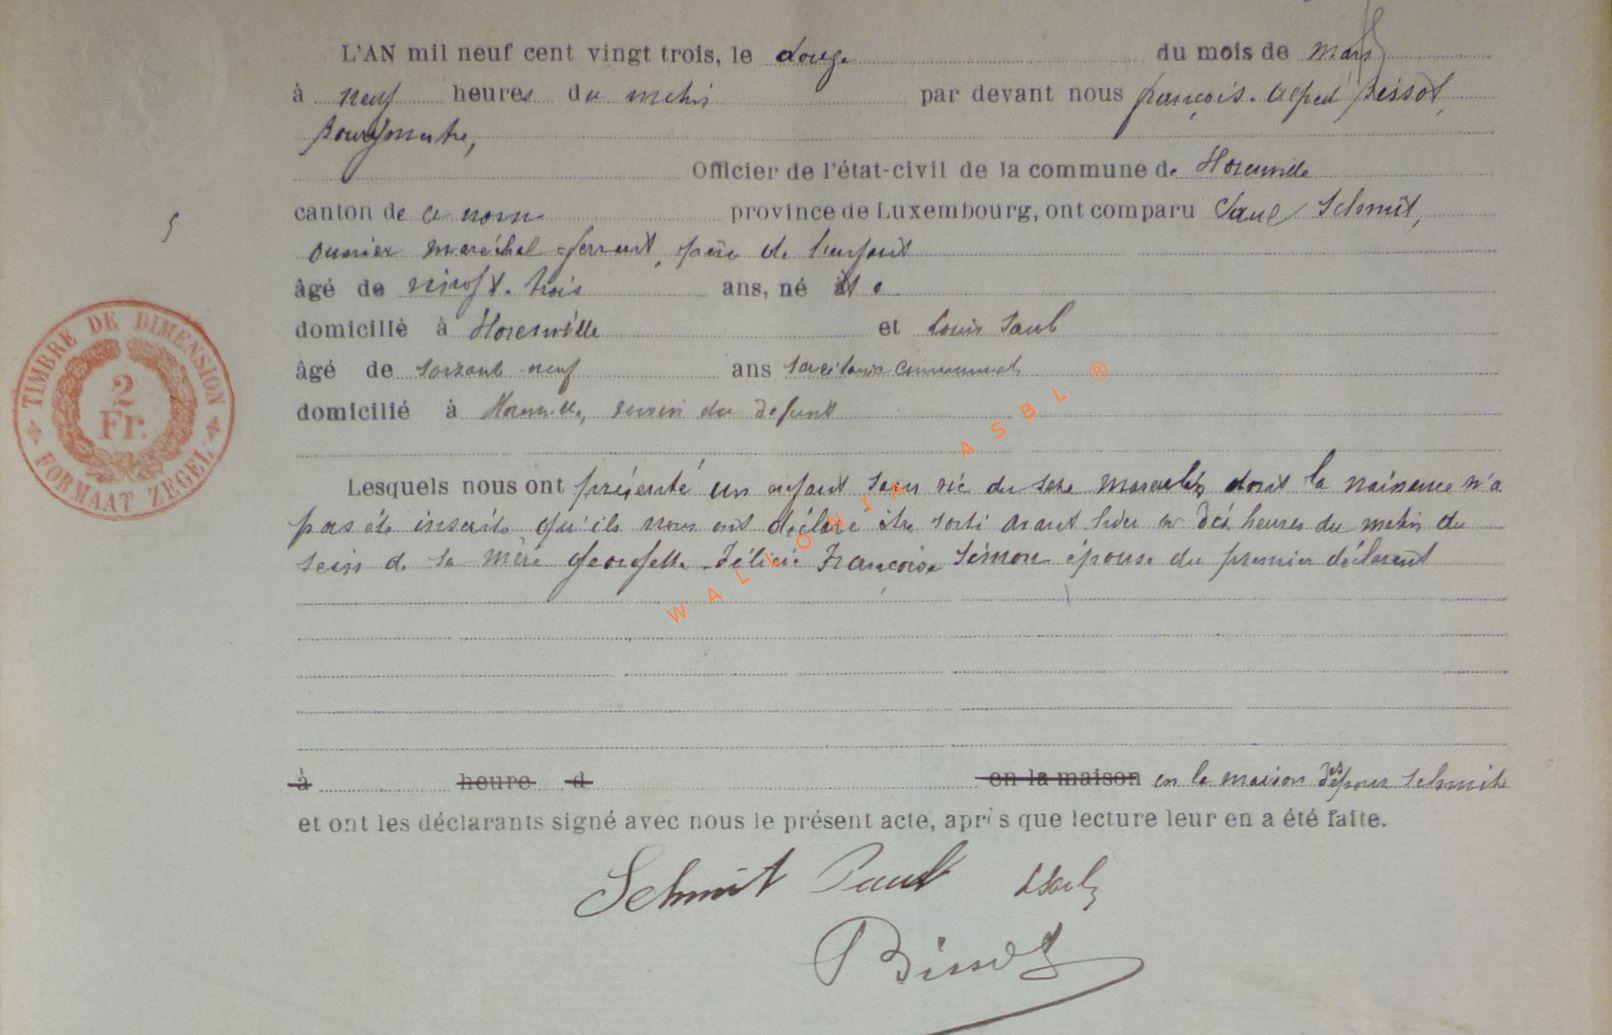 L'AN mil neuf cent vingt trois, le douze du mois de mars
à neuf heures du matin par devant nous françois. Alfred Bissot,
Bourgmestre,
Officier de l'état-civil de la commune de Horenville
canton de ce nom province de Luxembourg, ont comparu Paul Schmit,
ouvrier maréchal-ferrant, père de l'enfant
âgé de vingt-trois ans, né à
domicilié à Horenville et Louis Saul
âgé de soixante neuf ans secrétaire communal
domicilié à voisin du defunt
Lesquels nous ont présenté un enfant sans vie du sexe masculin dont la naissance n'a
pas été inscrite qu'ils nous ont déclaré être sorti avant hier à dix heures du matin du
sein de sa mère Georgette Félicie Françoise Simon épouse du premier déclarant
à heure d en la maison en la maison des époux Schmit
et ont les déclarants signé avec nous le présent acte, après que lecture leur en a été faite.
Schmit Paul LSaul
Bissot
TIMBRE DE DIMENSION
2
Fr.
FORMAAT ZEGEL
5
WALLONIA ASBL ®